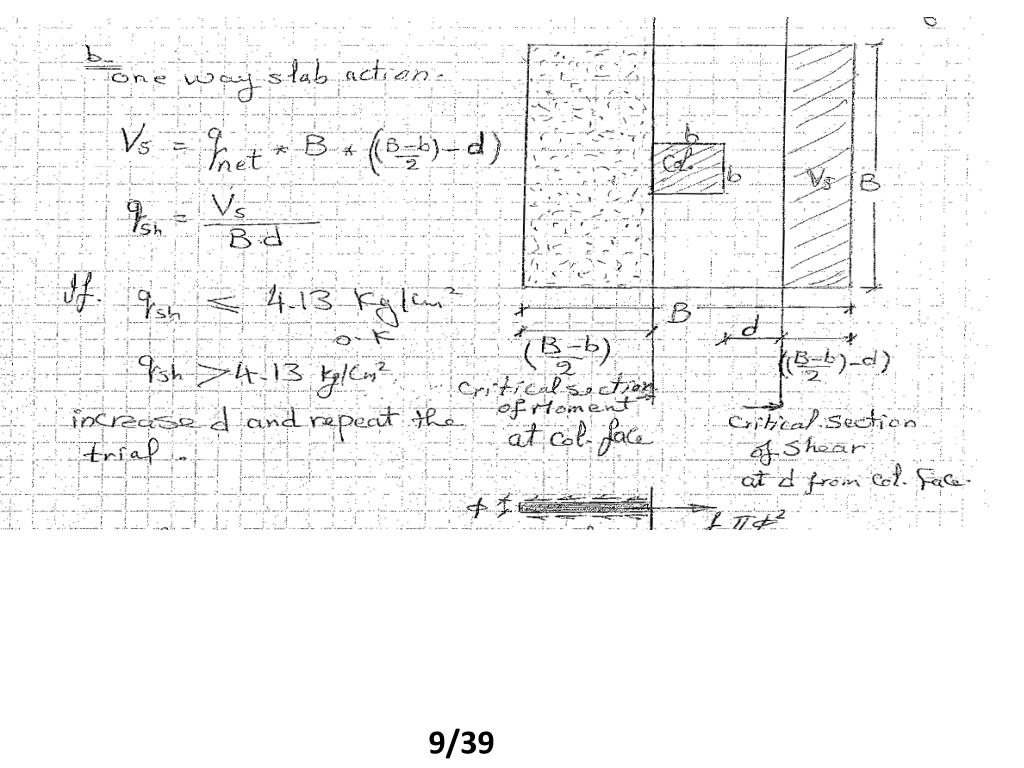 b-
one way slab action.
Vs = qnet * B * ((B-b)/2 - d)
qsh = Vs / B.d
If. qsh ≤ 4.13 Kg/cm²
o.K
qsh > 4.13 Kg/cm²
increase d and repeat the
trial.
b
Col.
b
Vs
B
B
d
(B-b)/2
((B-b)/2 - d)
critical section
of Moment
at col. face
Critical Section
of Shear
at d from Col. Face.
ϕ
π ϕ²
9/39